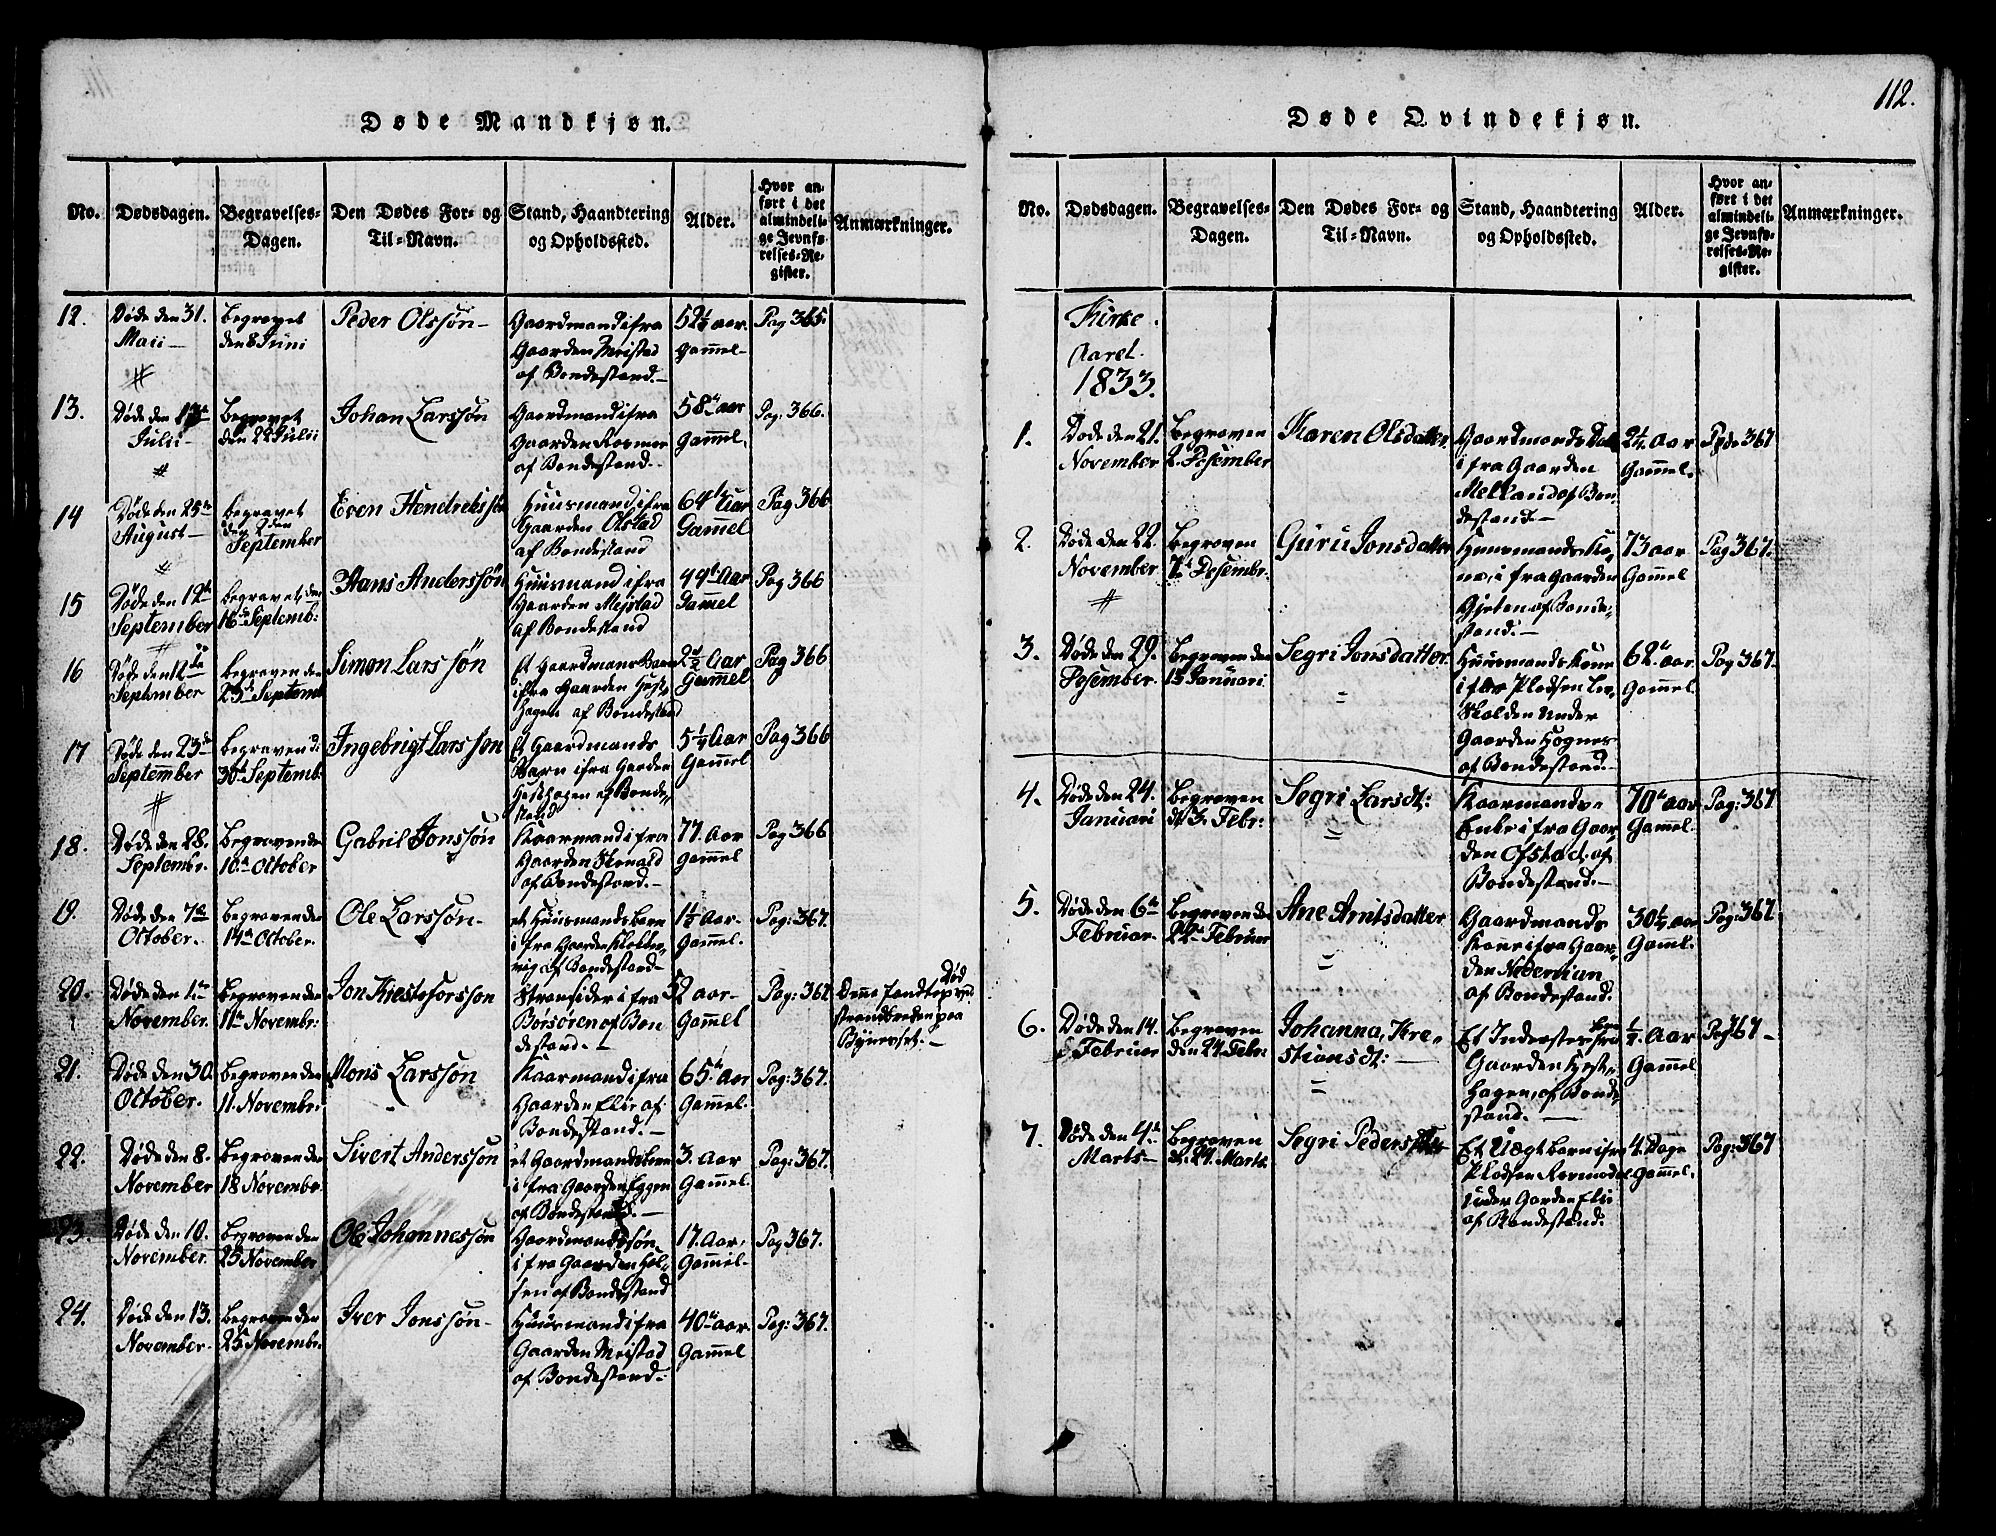 112.
Døde Mandkjøn.
No.
Dødsdagen.
Begravelses-
Dagen.
Den Dødes For- og
Til-Navn.
Stand, Haandtering
og Opholdssted.
Alder.
Hvor an-
ført i det
almindeli-
ge Jevnfø-
relses-Re-
gister.
Anmærkninger.
12.
Døde den 31.
Maii
Begravet
den 8 Juni
Peder Olssøn
Gaardmand ifra
Gaarden Meistad
af Bondestand.
52½ aar
Gammel
Pag 365.
13.
Døde den
Julii
Begravet
den 22 Julii
Johan Larssøn
Gaardmand ifra
Gaarden
af Bondestand.
58 aar
Gammel.
Pag: 366.
14
Døde den 25
August
Begravet
den 2den
September
Even Hendrikssøn
Huusmand ifra
Gaarden Ølstad
af Bondestand
64 Aar
Gammel
Pag 366
15
Døde den 12te
September
Begravet den
16de Septemb:
Hans Anderssøn
Huusmand ifra
Gaarden Mejstad
af Bondestand
44 Aar
Gammel
Pag 366
16
Døde den 12
September
Begraven den
23 Septemb
Simon Larssøn
Et Gaardmans Barn
ifra Gaarden Hest
hagen af Bondestand
2½ Aar
Gammel
Pag 366
17
Døde den 23de
September
Begraven d:
30te Septemb:
Ingebrigt Larssøn
Et Gaardmands
Barn ifra Garden
Hesthagen af Bonde
stand
5¼ Aar
Gammel
Pag 366
18.
Døde den 28.
Septembr.
Begraven de
10de October
Gabril Jonssøn
Kaarmand ifra
Gaarden Skenald
af Bondestand.
77. Aar
Gammel
Pag 366
19.
Døde den 7de
October.
Begraven den
14de October.
Ole Larssøn
et Huusmands barn
ifra Gaarden
af Bondestand
1½ Aar.
Gammel.
Pag: 367.
20.
Døde den 1ste
November.
Begraven den
11te Novembr:
Jon Kristofersson
Stransider ifra
Børsøren af Bon
destand.
52 aar
Gammel
Pag: 367
Denne fandtes Død ved
strandbreden paa
Bynesset.
21.
Døde den 30.
October.
Begraven den
11. Novembr:
Mons Larssøn
Kaarmand ifra
Gaarden Elie af
Bondestand.
65 aar
Gammel.
Pag: 367.
22.
Døde den 8.
November
Begraven den
18 Novembr.
Sivert Anderssøn
et Gaardmands barn
ifra Gaarden Eggen
af Bondestand.
3. Aar
Gammel.
Pag: 367.
23.
Døde den 10.
November.
Begraven den
25 November
Ole Johannessøn
Gaardmandssøn
ifra Gaarden Hal-
sen af Bondestand
17. Aar.
Gammel
Pag 367.
24.
Døde den 13.
November.
Begraven den
25 Novembr.
Iver Jonssøn
Huusmand ifra
Gaarden Meistad
af Bondestand.
40 aar
Gammel
Pag: 367.
Døde Qvindekjøn.
No.
Dødsdagen.
Begravelses-
Dagen.
Den Dødes For- og
Til-Navn.
Stand, Haandtering
og Opholdssted.
Alder.
Hvor an-
ført i det
almindeli-
ge Jevnfø-
relses-Re-
gister.
Anmærkninger.
Kirke
Aaret.
1833.
1.
Døde den 21.
November
Begraven
2. Desember
Karen Olsdatter
Gaardmands Dat
ifra Gaarden
Melland af Bon
destand
2¼ Aar
Gammel.
Pag 367
2.
Døde den 22.
November
Begraven
7de Desembr.
Guru Jonsdatter
Huusmands Ko
ne, ifra Gaarden
Gjeten af Bonde-
stand.
73 aar
Gammel
Pag 367.
3.
Døde den 29.
Desember.
Begraven den
Januari
Segri Jonsdatter
Huusmands Kone
ifra Pladsen
skolden under
Gaarden Hognes
af Bondestand.
62 aar.
Gammel.
Pag 367.
4.
Døde den 24.
Januari
Begraven
d. 3. Febr:
Segri Larsdt:
Kaarmands
Enke ifra Gaar
den Ofstad af
Bondestand.
70 aar
Gammel.
Pag: 367
5.
Døde den 6te
Februar.
Begraven den
22. Februar
Ane Arntsdatter
Gaardmands
Kone ifra Gaar
den Nedervian
af Bondestand.
30½ aar
Gamml.
Pag: 367.
6.
Døde den 14.
Februar
Begraven
den 24. Febr:
Johanna, Kre-
stiansdt:
Et Inderster barn ifra
Gaarden Hest-
hagen, af Bonde
stand.
½ Aar
Gammel
Pag 367
7.
Døde den 4de
Marts
Begraven
d. 24. Marts
Segri Pedersdatter
Et Uægt barn ifra
Pladsen
under Garden Elii
af Bondestand.
4. Dage
Gammel.
Pag: 367